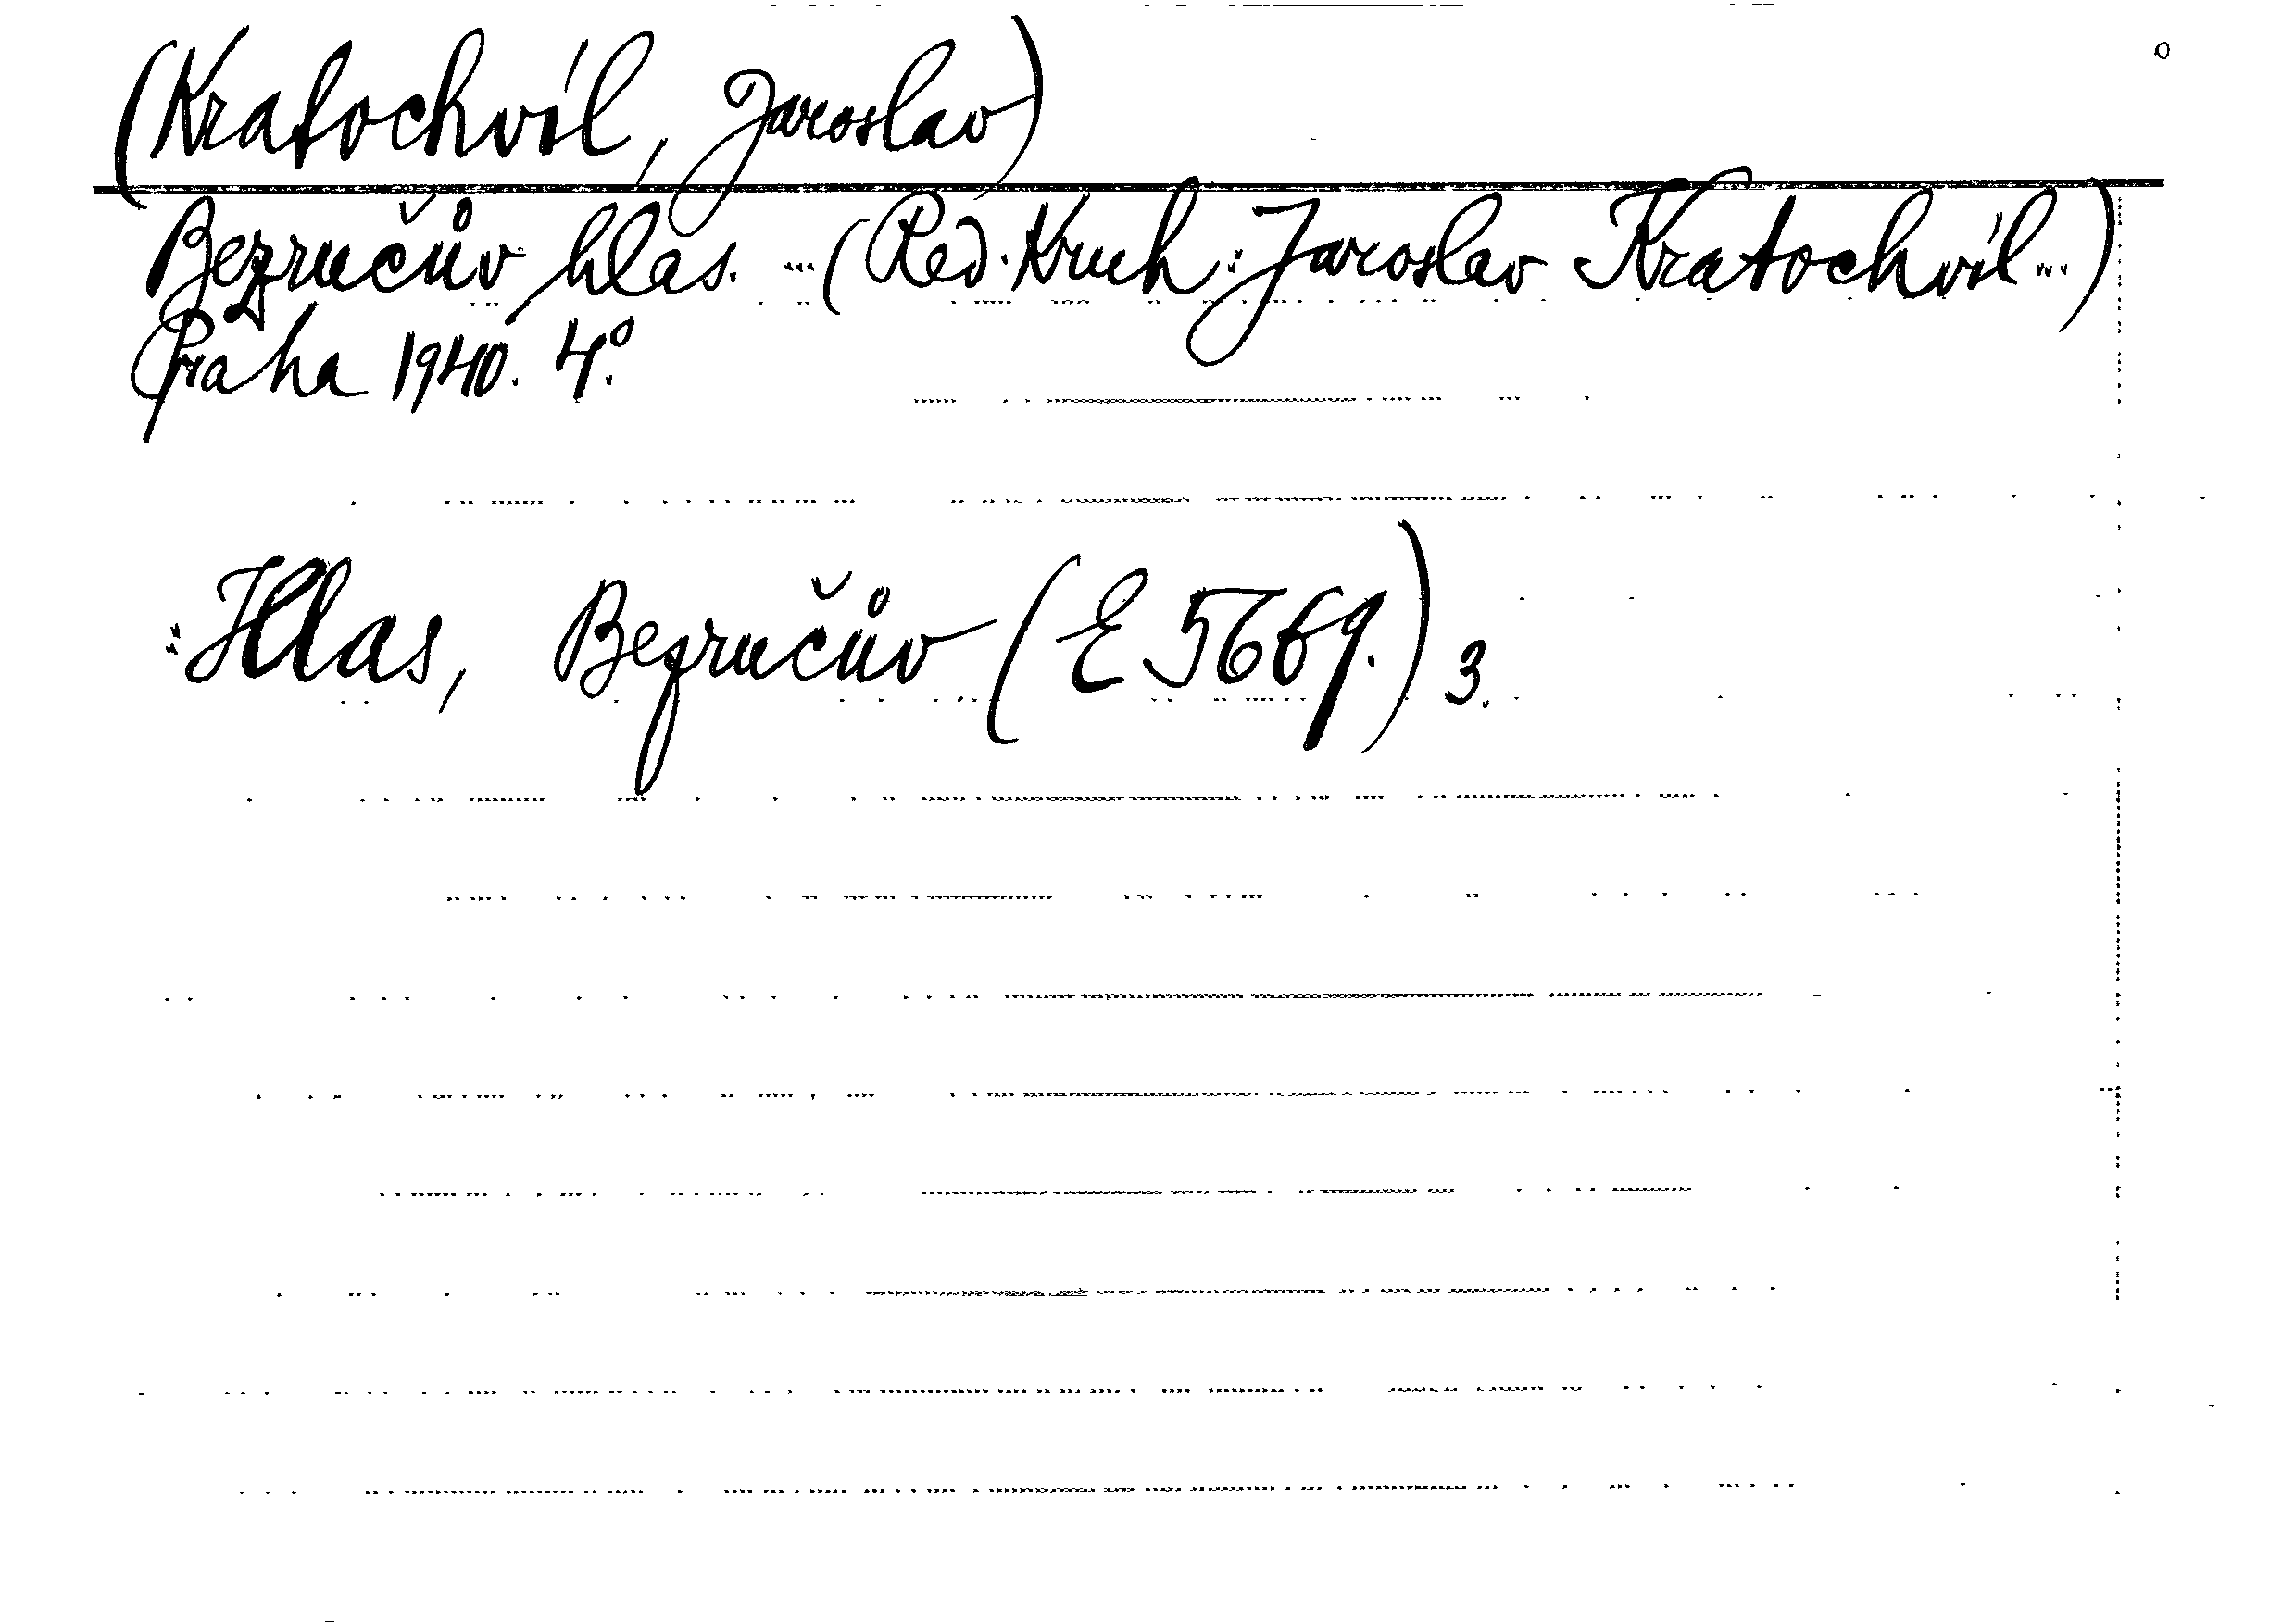 (Kratochvíl, Jaroslav)
Bezručův hlas. ... (Red. Kruh: Jaroslav Kratochvíl ...)
Praha 1940. 4.°
: Hlas, Bezručův (E 5669.) 3.